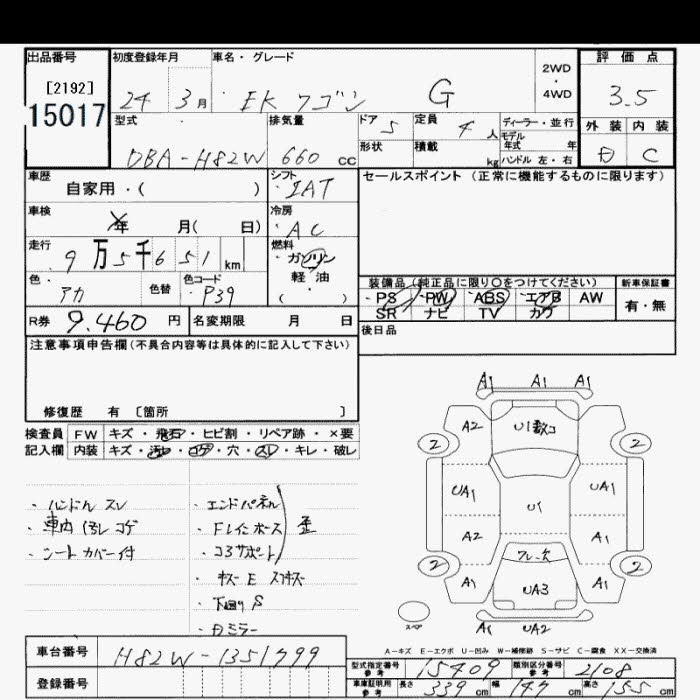 出品番号 初度登録年月 車名・グレード 2WD・4WD 評価点
[2192]
15017
24 3月 EK ワゴン G 3.5
型式 排気量 ドア 5 定員 4人 ディーラー・並行 外装 内装
モデル年式 年
DBA-H82W 660 cc 形状 積載 kg ハンドル 左・右 C
車歴 シフト セールスポイント (正常に機能するものに限ります)
自家用・( ) IAT
車検 年 月( 日) 冷房 AC
走行 9万5千651km 燃料 ガソリン
軽油
( )
色 アカ 色替 色コード P39 装備品 (純正品に限り○をつけてください) 新車保証書
PS PW ABS エアB AW 有・無
SR ナビ TV カワ
R券 9.460 円 名変期限 月 日 後日品
注意事項申告欄(不具合内容等は具体的に記入して下さい)
修復歴 有 〔箇所 〕
検査員 FW キズ・飛石・ヒビ割・リペア跡・×要
記入欄 内装 キズ・汚れ・コゲ・穴・スレ・キレ・破レ
・ハンドル スレ
・車内 汚レ コゲ
・シート カバー付
・エンドパネル
・Fレインホース 歪
・コアサポート
・下回り S
A1 A1 A1
2 A2 U1 2
UA1 U1 UA1
A2 A1
2 A1 UA3 A1 2
スペア A1 UA2
A-キズ E-エクボ U-凹み W-補修跡 S-サビ C-腐食 XX-交換済
車台番号 H82W-1351799
型式指定番号 参考 15409 類別区分番号 参考 2108
登録番号 車庫証明用 参考 長さ 339 cm 幅 147 cm 高さ 155 cm